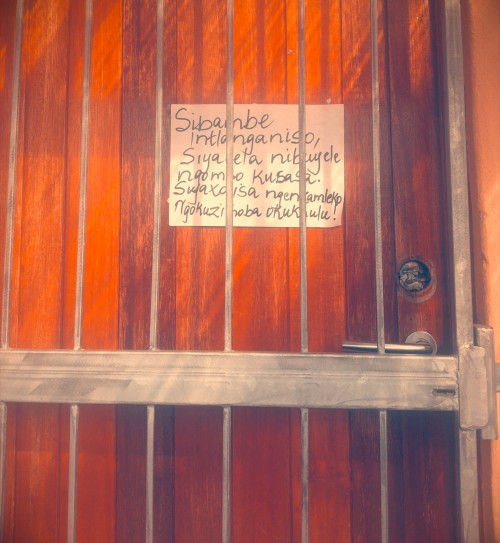 Sibambe
intlanganiso,
Siyaceta nibuyele
ngomso kusasa.
Siyaxolisa ngenkamleko
Ngokuzinoba okukhulu!